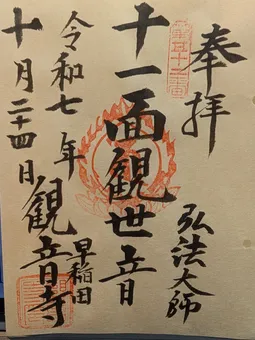 奉拝
第五十二番
弘法大師
十一面観世音
早稲田
観音寺
令和七年
十月二十四日